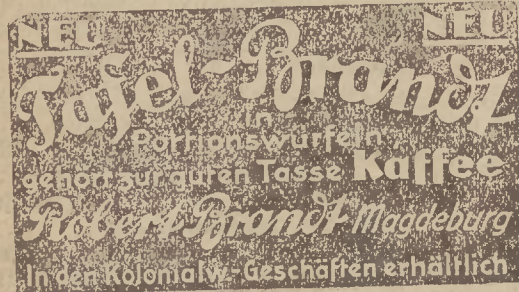 NEU NEU
Tafel-Brandt
in
Portionswürfeln
gehört zur guten Tasse Kaffee
Robert Brandt Magdeburg
In den Kolonialw.-Geschäften erhältlich